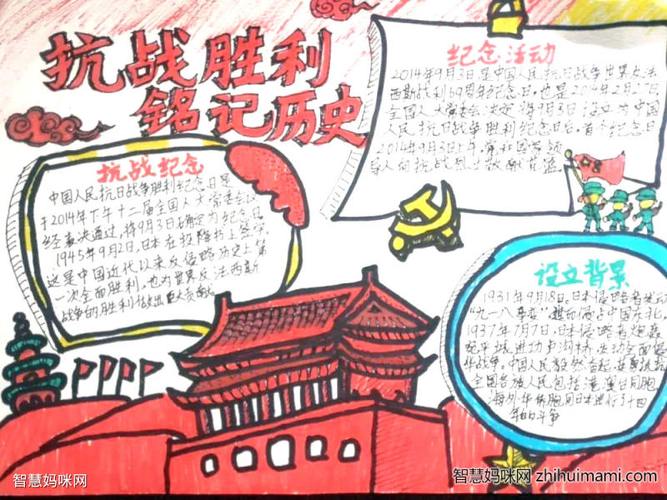 抗战胜利
铭记历史
纪念活动
2014年9月3日是中国人民抗日战争世界反法
西斯战利69周年纪念日,也是2014年2月27日
全国人大常委会决定将9月3日设立为中国
人民抗日战争胜利纪念日后,首个纪念日
2014年9月3日上午,党和国家领
导人向抗战烈士敬献花篮
抗战纪念
中国人民抗日战争胜利纪念日是
于2014年下午十二届全国人大常委会
经表决通过,将9月3日确定为纪念日
1945年9月2日,日本在投降书上签字
这是中国近代以来反侵略历史上第
一次全面胜利,也为世界反法西斯
战争的胜利做出巨大贡献
设立背景
1931年9月18日,日本侵略者发动
"九一八事变",占中国东北,
1937年7月7日,日本侵略者炮轰
宛平城进攻卢沟桥,发动全面侵
华战争。中国人民毅然奋起,
全国各族人民包括港澳台同胞
海外华侨胞同日本进行了十四
年的斗争
智慧妈咪网
智慧妈咪网 zhihuimami.com